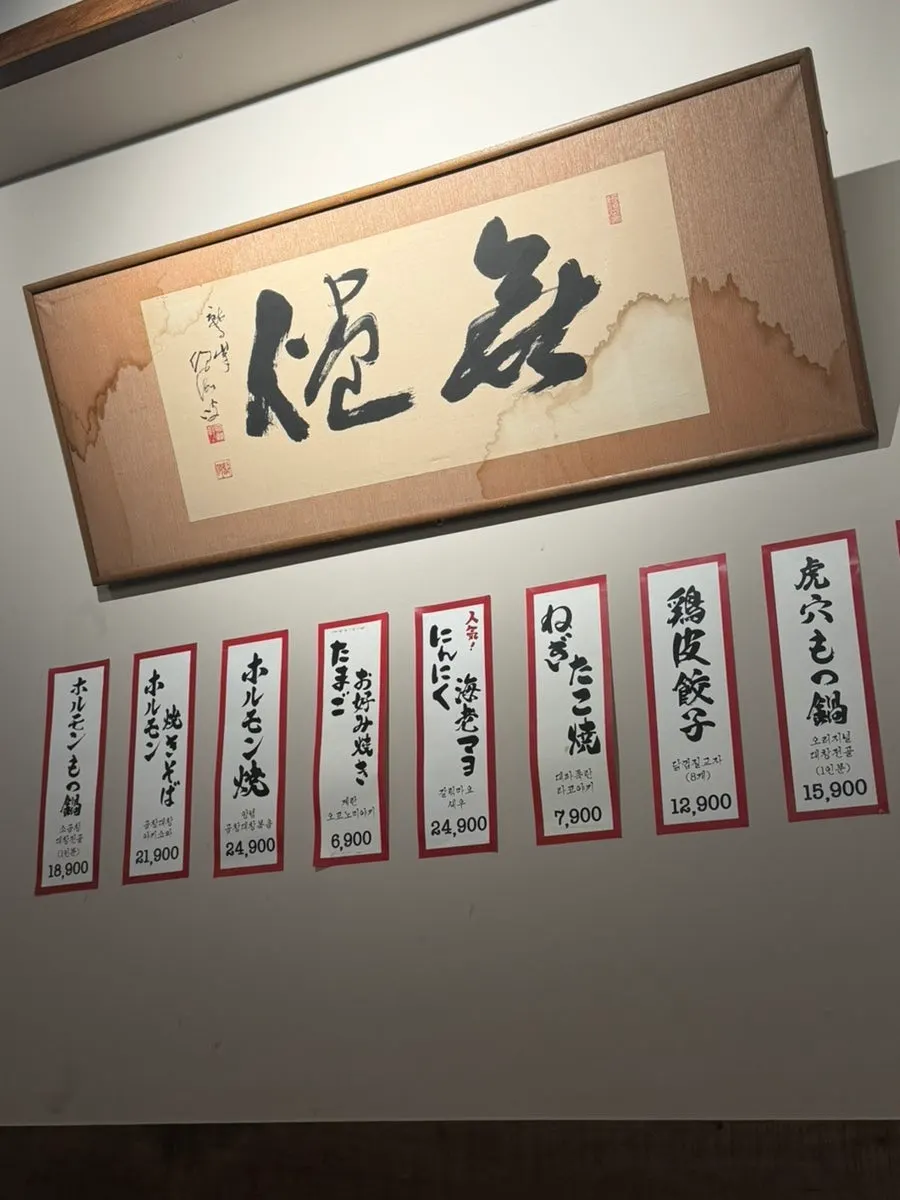 無倦
ホルモンもつ鍋
소곱창
대창전골
(1인분)
18,900
ホルモン
焼きそば
곱창대창
야키소바
21,900
ホルモン焼
곱창대창볶음
24,900
たまご
お好み焼き
계란
오코노미야키
6,900
人気!
にんにく
海老マヨ
갈릭마요
새우
24,900
ねぎ
たこ焼
대파폭탄
타코야키
7,900
鶏皮餃子
닭껍질교자
(8개)
12,900
虎穴もつ鍋
오리지널
대창전골
(1인분)
15,900